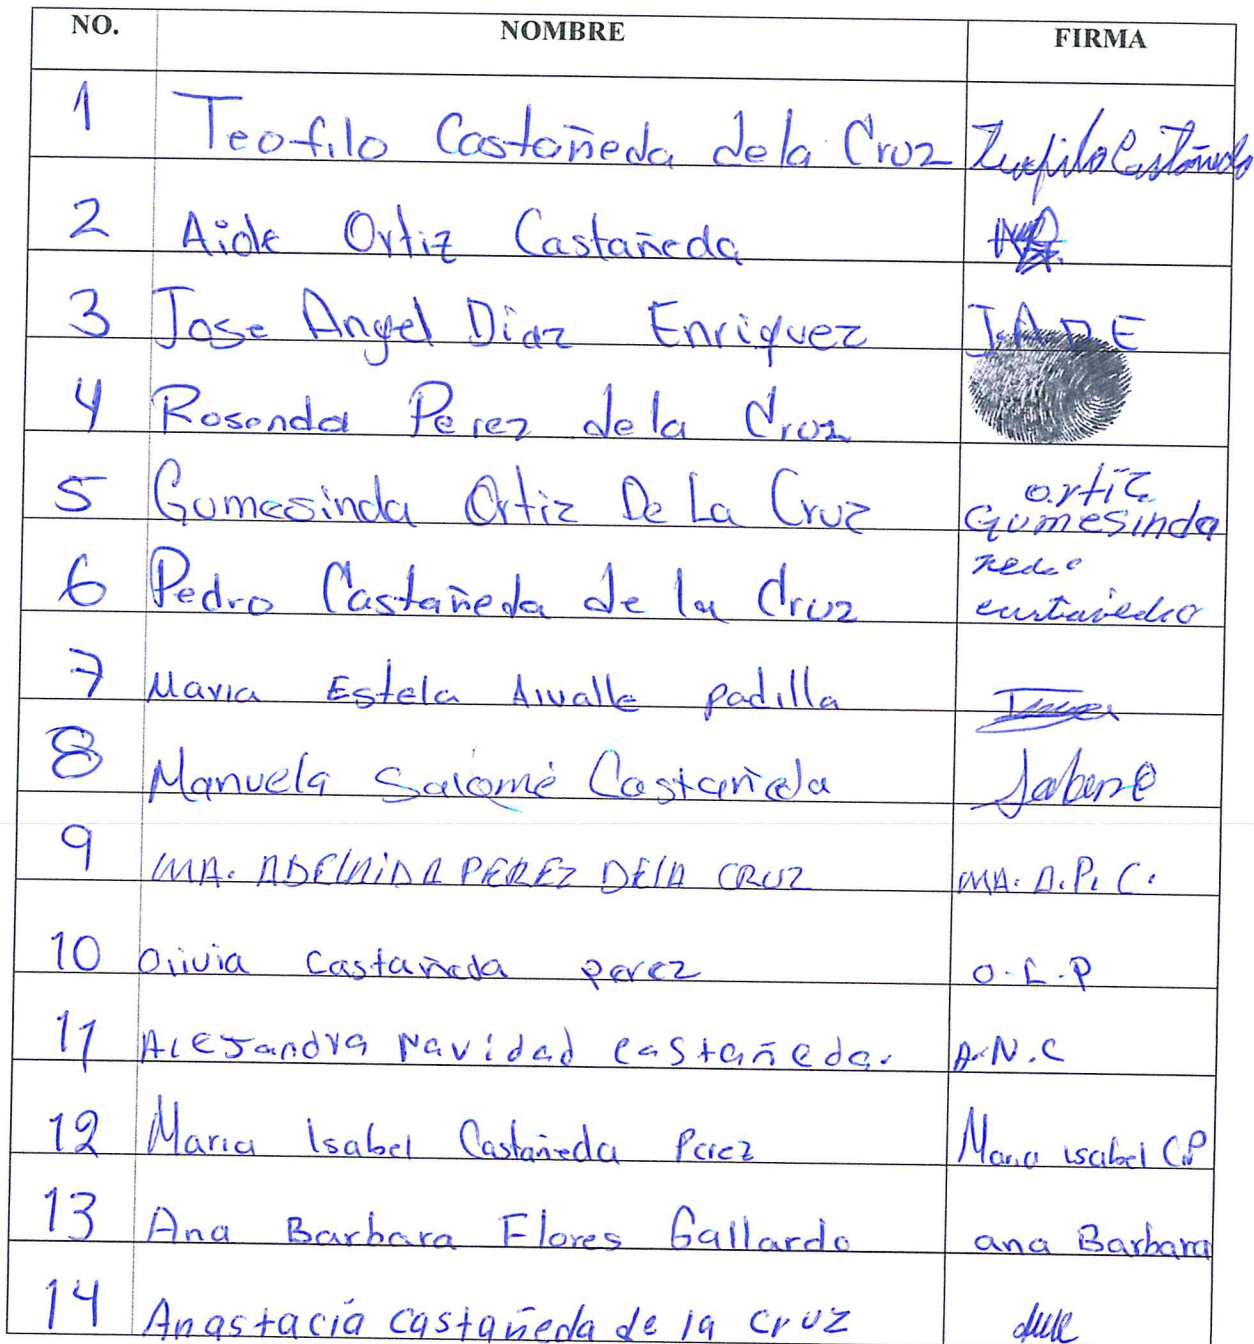 NO. NOMBRE FIRMA
1 Teofilo Castañeda dela Cruz Teofilo Castañeda
2 Aide Ortiz Castañeda
3 Jose Angel Diaz Enriquez J.A.D.E
4 Rosenda Perez de la Cruz
5 Gumesinda Ortiz De La Cruz ortiz
Gumesinda
6 Pedro Castañeda de la Cruz
7 Maria Estela Alvalle padilla
8 Manuela Salomé Castañeda
9 MA. ADELAIDA PEREZ DELA CRUZ MA. A.P. C.
10 Olivia castañeda perez O.C.P
11 Alejandra Navidad castañeda. A.N.C
12 Maria Isabel Castañeda Perez Maria isabel C.P
13 Ana Barbara Flores Gallardo ana Barbara
14 Anastacía castañeda de la cruz